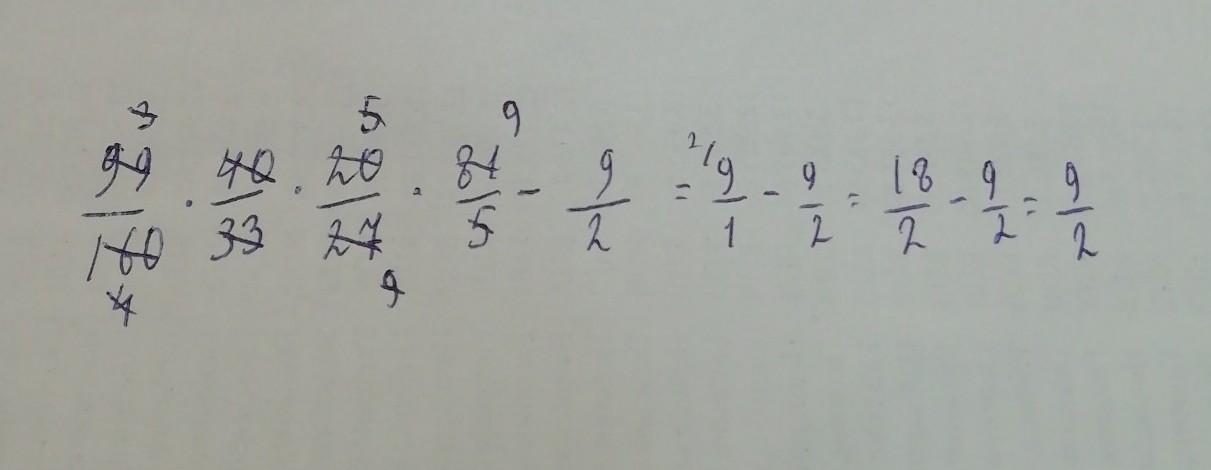 3 5 9
99/160 · 40/33 · 20/27 · 81/5 - 9/2 = 2/ 9/1 - 9/2 = 18/2 - 9/2 = 9/2
4 9